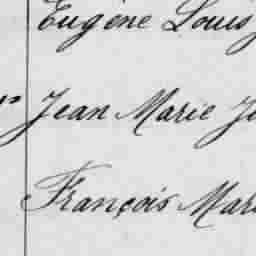 Eugène Louis
Jean Marie
François